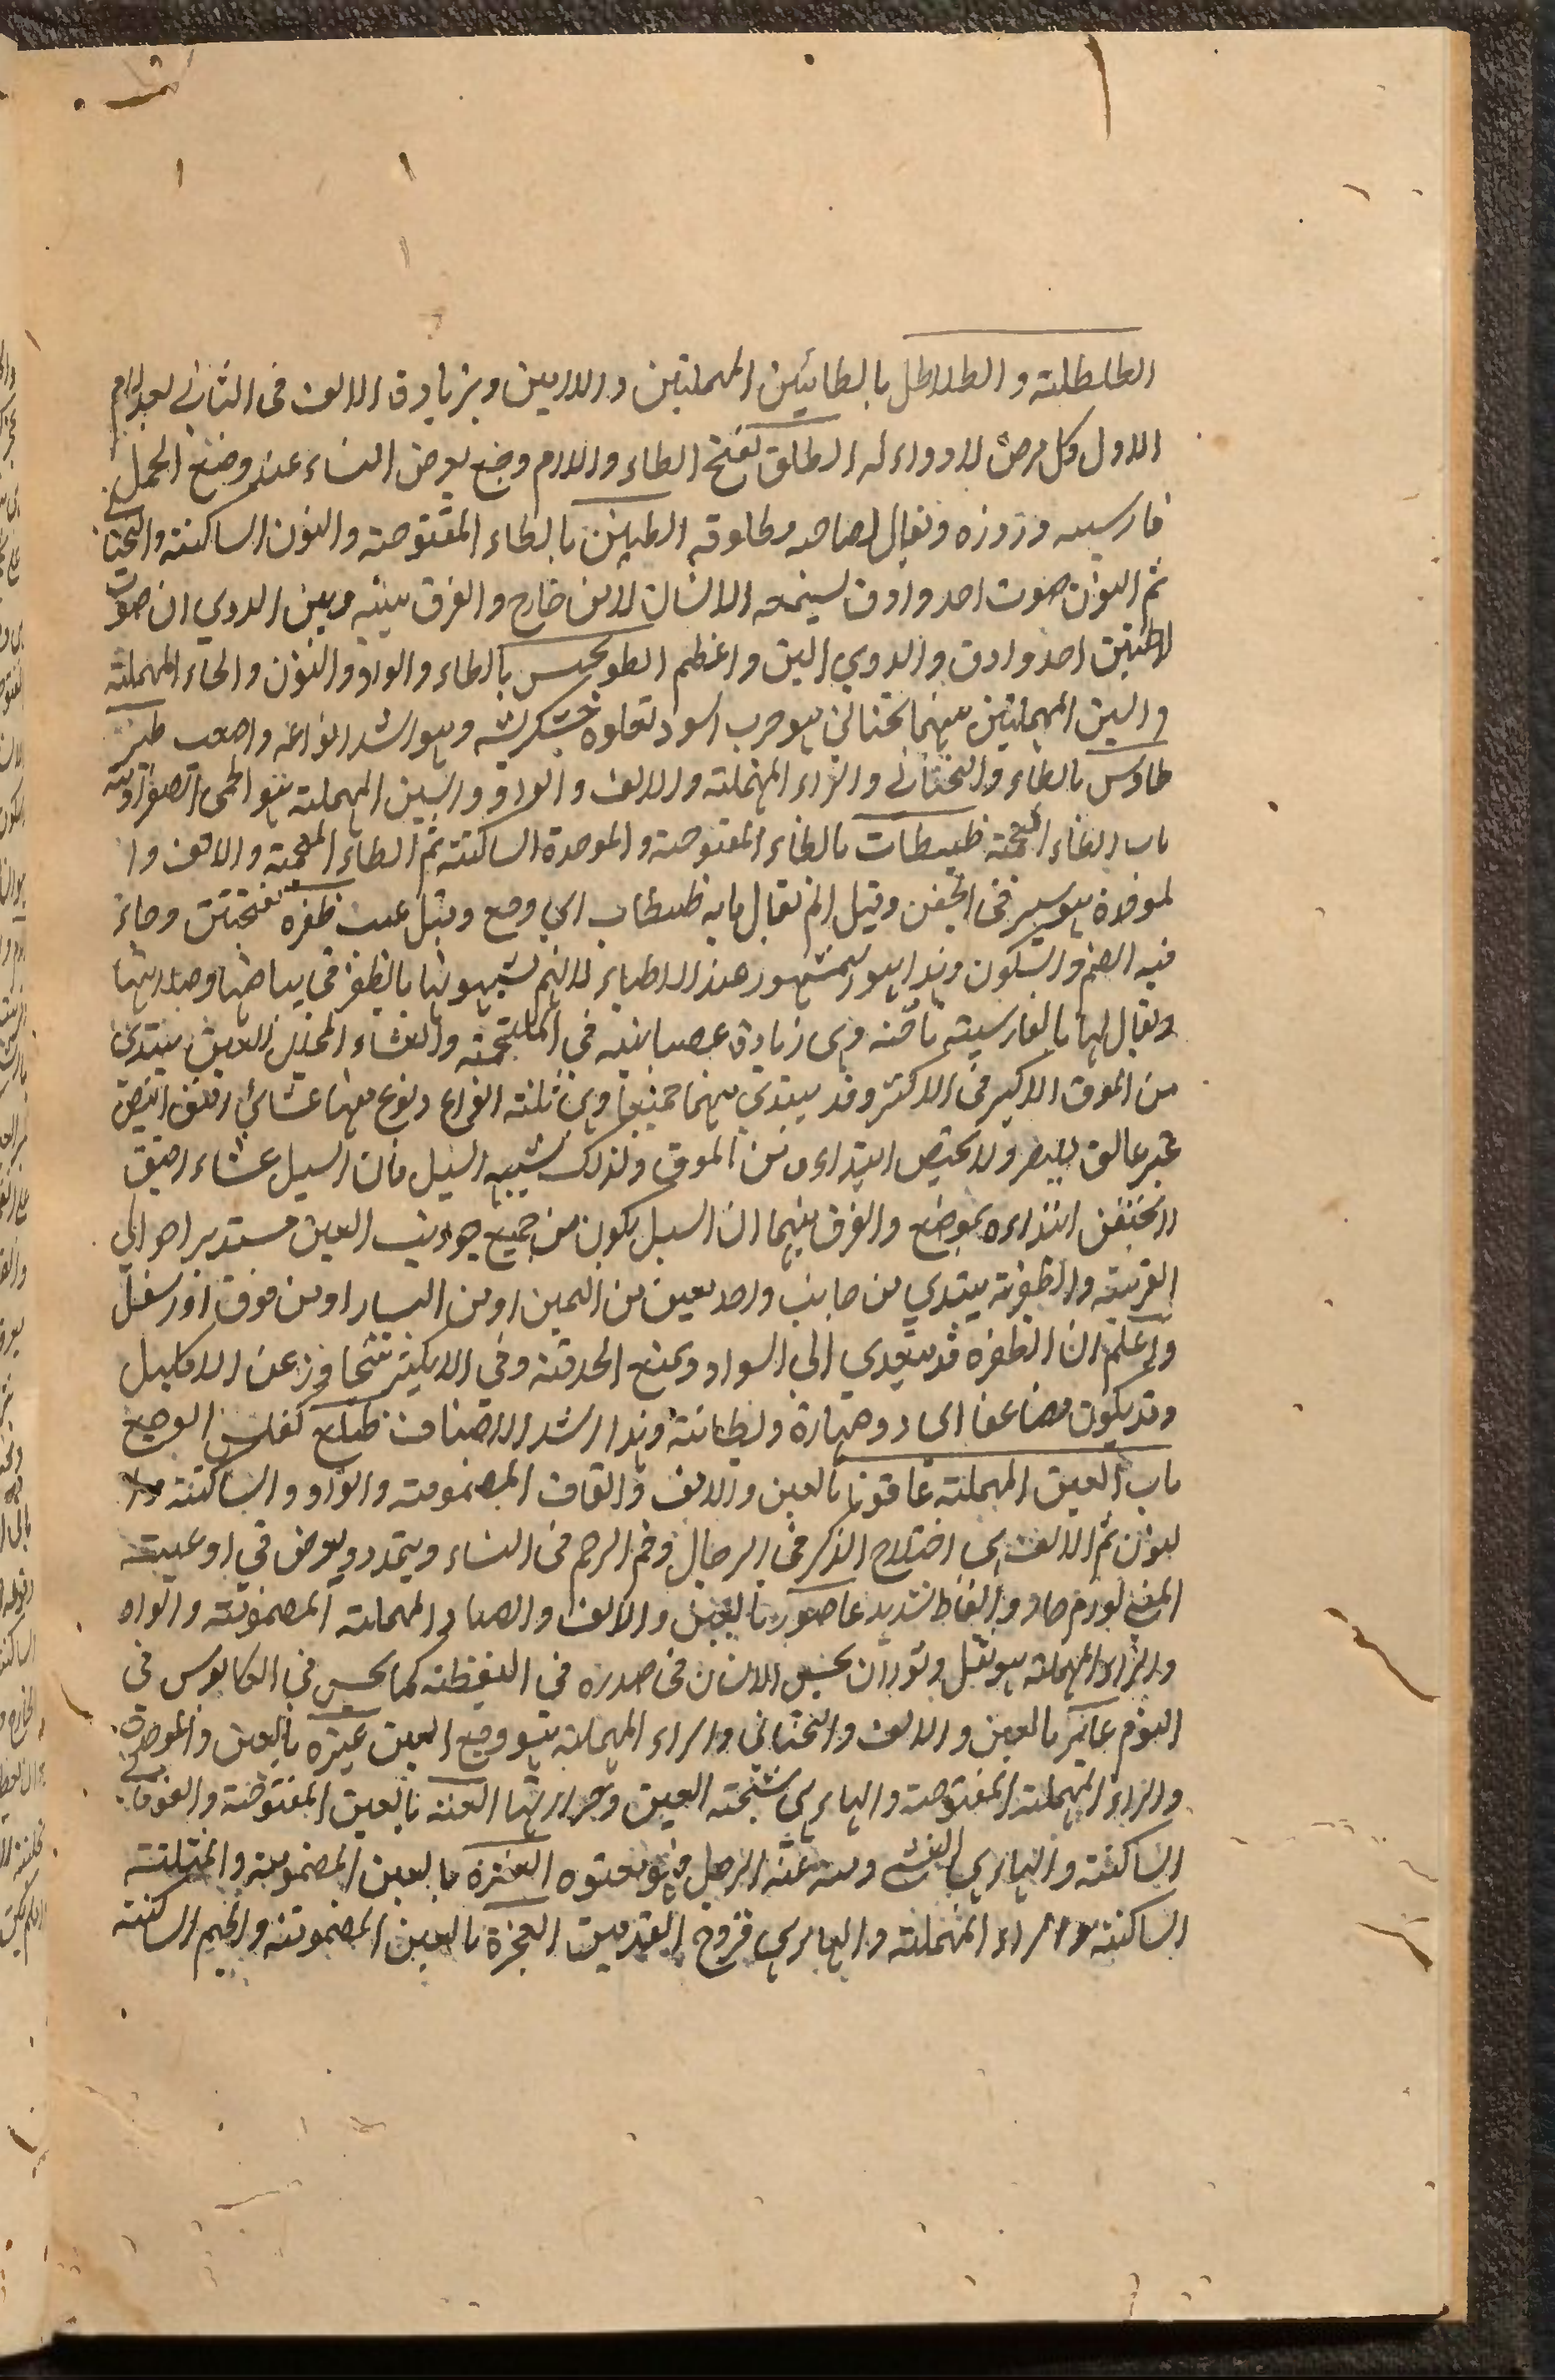 الطلطلة والطلاطل بالطائين المهملتين واللامين وبزيادة الالف فى الثانى بعد لام
الاول وكل مرض لا دواء له الطلق بفتح الطاء واللام وجع يعرض النساء عند وضع الحمل
فارسيه دردزه ويقال لصاحبه مطلوقه الطنين بالطاء المفتوحة والنون الساكنة والتحتانى
ثم النون صوت احد وادق يسمعه الانسان لا من خارج والفرق بينه وبين الدوي ان صوت
الطنين احد وادق والدوي الين واعظم الطونحس بالطاء والواو والنون والحاء المهملة
والسين المهملتين بينهما تحتانى هو جرب اسود تعلوه خشكريشه وهو اشد انواعه واصعب طير
طاوس بالطاء والتحتانى والراء المهملة والالف والواو والسين المهملة هو الحمى الصفراوية
باب الظاء المعجمة ظبظاب بالظاء المفتوحة والموحدة الساكنة ثم الظاء المعجمة والالف وا
لموحدة هو بثر فى الجفن وقيل انه يقال ما به ظبظاب اي وجع وقيل عيب ظفره بفتحتين وجاء
فيه الضم والسكون وهذا هو المشهور عند الاطباء لانهم يشبهونها بالظفر فى بياضها وصلابتها
ويقال لها بالفارسية ناخنه وهى زيادة عصبانيه فى الملتحمة والغشاء المجلل للعين يبتدي
من الموق الاكبر فى الاكثر وقد يبتدي منهما جميعا وهى ثلثة انواع ونوع منها غشائي رقيق ابيض
غير عالق للبصر ولا يختص ابتداءه من الموق ولذلك يشبه السبل فان السبل غشاء رقيق
لا يختص ابتداءه بموضع والفرق بينهما ان السبل يكون من جميع جوانب العين مستديرا حوالي
القرنية والظفرة يبتدي من جانب واحد معين من اليمين او من اليسار او من فوق او اسفل
واعلم ان الظفره قد يتعدي الى السواد ويمنع الحدقة وفى الاكثر تتجاوز عن الاكليل
وقد يكون مضاعفا اى ذو ظهارة وبطانة وهذا اشد الاصناف ظلع كفلس الوجع
باب العين المهملة عاقونا بالعين والالف والقاف المضمومة والواو والساكنة وا
لنون ثم الالف هى اختلاج الذكر فى الرجال وفم الرحم فى النساء ويتمدد ويعرض فى اوعية
المنى لورم حار وانعاظ شديد عاصور بالعين والالف والصاد المهملة المضمومة والواو
والراء المهملة هو ثقل وثوران يحس الانسان فى صدره فى اليقظة كما يحس فى الكابوس فى
النوم عاير بالعين والالف والتحتانى والراء المهملة هو وجع العين عبره بالعين والموحدة
والراء المهملة المفتوحة والهاء هى سخنة العين وحرارتها العته بالعين المفتوحة والفوقانى
الساكنة والهاء هى الغش ومنه عته الرجل فهو معتوه العثره بالعين المضمومة والمثلثة
الساكنة والراء المهملة والهاء هى قروح القدمين العجرة بالعين المضمومة والجيم الساكنة